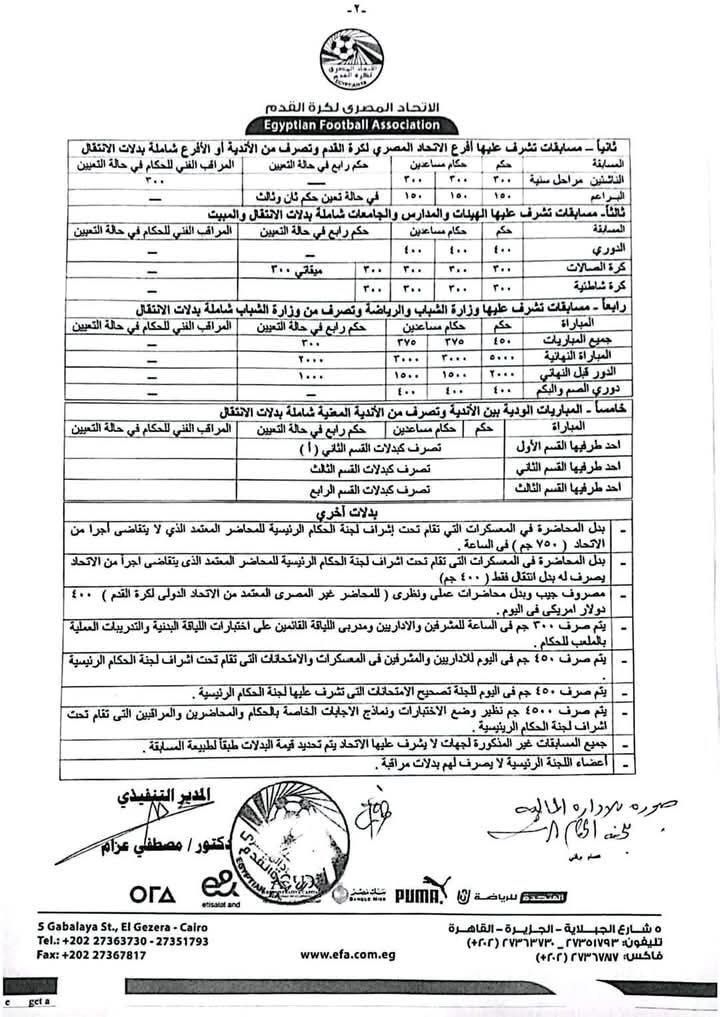 -٢-
الاتحاد المصرى لكرة القدم
EGYPTIAN FA
الاتحاد المصرى لكرة القدم
Egyptian Football Association
ثانياً – مسابقات تشرف عليها أفرع الاتحاد المصري لكرة القدم وتصرف من الأندية أو الأفرع شاملة بدلات الانتقال
المسابقة حكم حكام مساعدين حكم رابع في حالة التعيين المراقب الفني للحكام في حالة التعيين
الناشئين مراحل سنية ٣٠٠ ٣٠٠ ٣٠٠ — ٣٠٠
البراعم ١٥٠ ١٥٠ ١٥٠ في حالة تعين حكم ثان وثالث —
ثالثاً- مسابقات تشرف عليها الهيئات والمدارس والجامعات شاملة بدلات الانتقال والمبيت
المسابقة حكم حكام مساعدين حكم رابع في حالة التعيين المراقب الفني للحكام في حالة التعيين
الدوري ٤٠٠ ٤٠٠ ٤٠٠ — —
كرة الصالات ٣٠٠ ٣٠٠ ٣٠٠ ٣٠٠ ميقاتي ٣٠٠ —
كرة شاطئية ٣٠٠ ٣٠٠ ٣٠٠ ٣٠٠ —
رابعاً – مسابقات تشرف عليها وزارة الشباب والرياضة وتصرف من وزارة الشباب شاملة بدلات الانتقال
المباراة حكم حكام مساعدين حكم رابع في حالة التعيين المراقب الفني للحكام في حالة التعيين
جميع المباريات ٤٥٠ ٣٧٥ ٣٧٥ ٣٠٠ —
المباراة النهائية ٥٠٠٠ ٣٠٠٠ ٣٠٠٠ ٢٠٠٠ —
الدور قبل النهائي ٢٠٠٠ ١٥٠٠ ١٥٠٠ ١٠٠٠ —
دوري الصم والبكم ٤٠٠ ٤٠٠ ٤٠٠ — —
خامساً – المباريات الودية بين الأندية وتصرف من الأندية المعنية شاملة بدلات الانتقال
المباراة حكم حكام مساعدين حكم رابع في حالة التعيين المراقب الفني للحكام في حالة التعيين
احد طرفيها القسم الأول تصرف كبدلات القسم الثاني ( أ )
احد طرفيها القسم الثاني تصرف كبدلات القسم الثالث
احد طرفيها القسم الثالث تصرف كبدلات القسم الرابع
بدلات أخري
- بدل المحاضرة في المعسكرات التي تقام تحت إشراف لجنة الحكام الرئيسية للمحاضر المعتمد الذي لا يتقاضى أجرا من
الاتحاد ( ٧٥٠ جم ) فى الساعة .
- بدل المحاضرة فى المعسكرات التى تقام تحت اشراف لجنة الحكام الرئيسية للمحاضر المعتمد الذى يتقاضى اجراً من الاتحاد
يصرف له بدل انتقال فقط ( ٤٠٠ جم)
- مصروف جيب وبدل محاضرات عملى ونظرى ( للمحاضر غير المصرى المعتمد من الاتحاد الدولى لكرة القدم ) ٤٠٠
دولار امريكى فى اليوم .
- يتم صرف ٣٠٠ جم فى الساعة للمشرفين والاداريين ومدربى اللياقة القائمين على اختبارات اللياقة البدنية والتدريبات العملية
بالملعب للحكام .
- يتم صرف ٤٥٠ جم فى اليوم للاداريين والمشرفين فى المعسكرات والامتحانات التى تقام تحت اشراف لجنة الحكام الرئيسية
.
- يتم صرف ٤٥٠ جم فى اليوم للجنة تصحيح الامتحانات التى تشرف عليها لجنة الحكام الرئيسية .
- يتم صرف ٤٥٠٠ جم نظير وضع الاختبارات ونماذج الاجابات الخاصة بالحكام والمحاضرين والمراقبين التى تقام تحت
اشراف لجنة الحكام الرئيسية .
- جميع المسابقات غير المذكورة لجهات لا يشرف عليها الاتحاد يتم تحديد قيمة البدلات طبقاً لطبيعة المسابقة .
- أعضاء اللجنة الرئيسية لا يصرف لهم بدلات مراقبة .
المدير التنفيذي
دكتور / مصطفي عزام
صوره للاداره المالية
لجنة الحكام
ORA e& etisalat and بنك مصر BANQUE MISR PUMA المتحدة للرياضة
5 Gabalaya St., El Gezera - Cairo
Tel.: +202 27363730 - 27351793
Fax: +202 27367817
www.efa.com.eg
٥ شارع الجبلاية - الجزيرة - القاهرة
تليفون: ٢٧٣٥١٧٩٣ - ٢٧٣٦٣٧٣٠ (٢٠٢+)
فاكس: ٢٧٣٦٧٨١٧ (٢٠٢+)
e get a